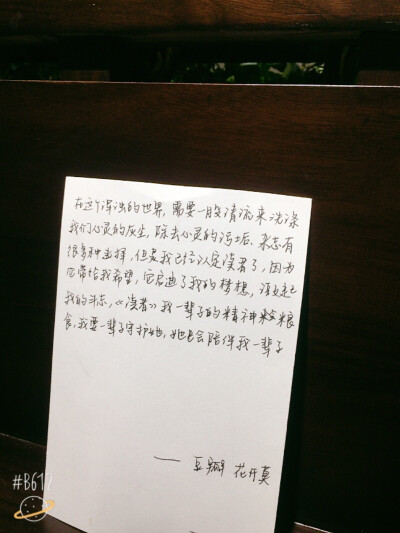 在这个浑浊的世界,需要一股清流来洗涤
我们心灵的灰尘,除去心灵的污土后.杂志有
很多种选择,但是我已经认定读者了,因为
它带给我希望,它启迪了我的梦想,激起
我的斗志,《读者》我一辈子的精神粮
食,我要一辈子守护她,她也会陪伴我一辈子
—— 豆瓣 花开莫
#B612